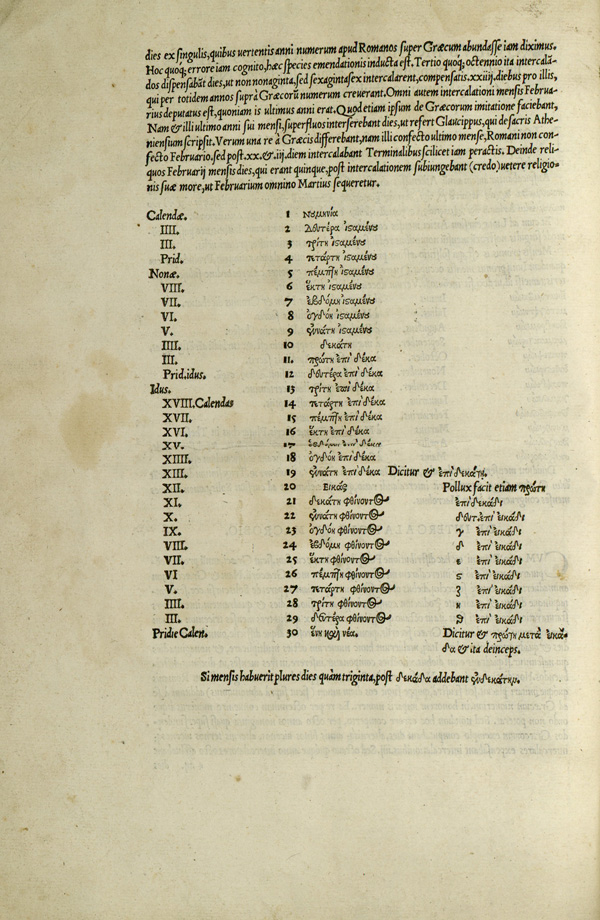 dies ex singulis, quibus uertentis anni numerum apud Romanos super Græcum abundasse iam diximus.
Hoc quoq; errore iam cognito, hæc species emendationis inducta est. Tertio quoq; octennio ita intercalã-
dos dispensabãt dies, ut non nonaginta, sed sexagintasex intercalarent, compensatis .xxiiij. diebus pro illis,
qui per totidem annos suprà Græcorũ numerum creuerant. Omni autem intercalationi mensis Februa-
rius deputatus est, quoniam is ultimus anni erat. Quod etiam ipsum de Græcorum imitatione faciebant,
Nam & illi ultimo anni sui mensi, superfluos interserebant dies, ut refert Glaucippus, qui de sacris Athe-
niensium scripsit. Verum una re à Græcis differebant, nam illi confecto ultimo mense, Romani non con-
fecto Februario, sed post .xx. &. iij. diem intercalabant Terminalibus scilicet iam peractis. Deinde reli-
quos Februarij mensis dies, qui erant quinque, post intercalationem subiungebant (credo) uetere religio-
nis suæ more, ut Februarium omnino Martius sequeretur.
Calendæ. 1 νουμηνία
IIII. 2 δευτέρα ἱσαμένου
III. 3 τρίτη ἱσαμένου
Prid. 4 τετάρτη ἱσαμένου
Nonæ. 5 πέμπτη ἱσαμένου
VIII. 6 ἕκτη ἱσαμένου
VII. 7 ἑβδόμη ἱσαμένου
VI. 8 ὀγδόη ἱσαμένου
V. 9 ἐννάτη ἱσαμένου
IIII. 10 δεκάτη
III. 11. πρώτη ἐπὶ δέκα
Prid. idus. 12 δευτέρα ἐπὶ δέκα
Idus. 13 τρίτη ἐπὶ δέκα
XVIII. Calendas 14 τετάρτη ἐπὶ δέκα
XVII. 15 πέμπτη ἐπὶ δέκα
XVI. 16 ἕκτη ἐπὶ δέκα
XV. 17 ἑβδόμη ἐπὶ δέκα
XIIII. 18 ὀγδόη ἐπὶ δέκα
XIII. 19 ἐννάτη ἐπὶ δέκα Dicitur & ἐπιδεκάτη.
XII. 20 Εικὰς Pollux facit etiam πρώτη
XI. 21 δεκάτη φθίνοντος ἐπὶ εἰκάδι
X. 22 ἐννάτη φθίνοντος δευτ. ἐπὶ εἰκάδι
IX. 23 ὀγδόη φθίνοντος γ ἐπὶ εἰκάδι
VIII. 24 ἑβδόμη φθίνοντος δ ἐπὶ εἰκάδι
VII. 25 ἕκτη φθίνοντος ε ἐπὶ εἰκάδι
VI 26 πέμπτη φθίνοντος ς ἐπὶ εἰκάδι
V. 27 τετάρτη φθίνοντος ζ ἐπὶ εἰκάδι
IIII. 28 τρίτη φθίνοντος η ἐπὶ εἰκάδι
III. 29 δευτέρα φθίνοντος θ ἐπὶ εἰκάδι
Pridie Calen. 30 ἕνη καὶ νέα. Dicitur & πρώτη μετὰ εἰκά-
δα & ita deinceps.
Si mensis habuerit plures dies quàm triginta, post δεκάδα addebant ἑνδεκάτην.